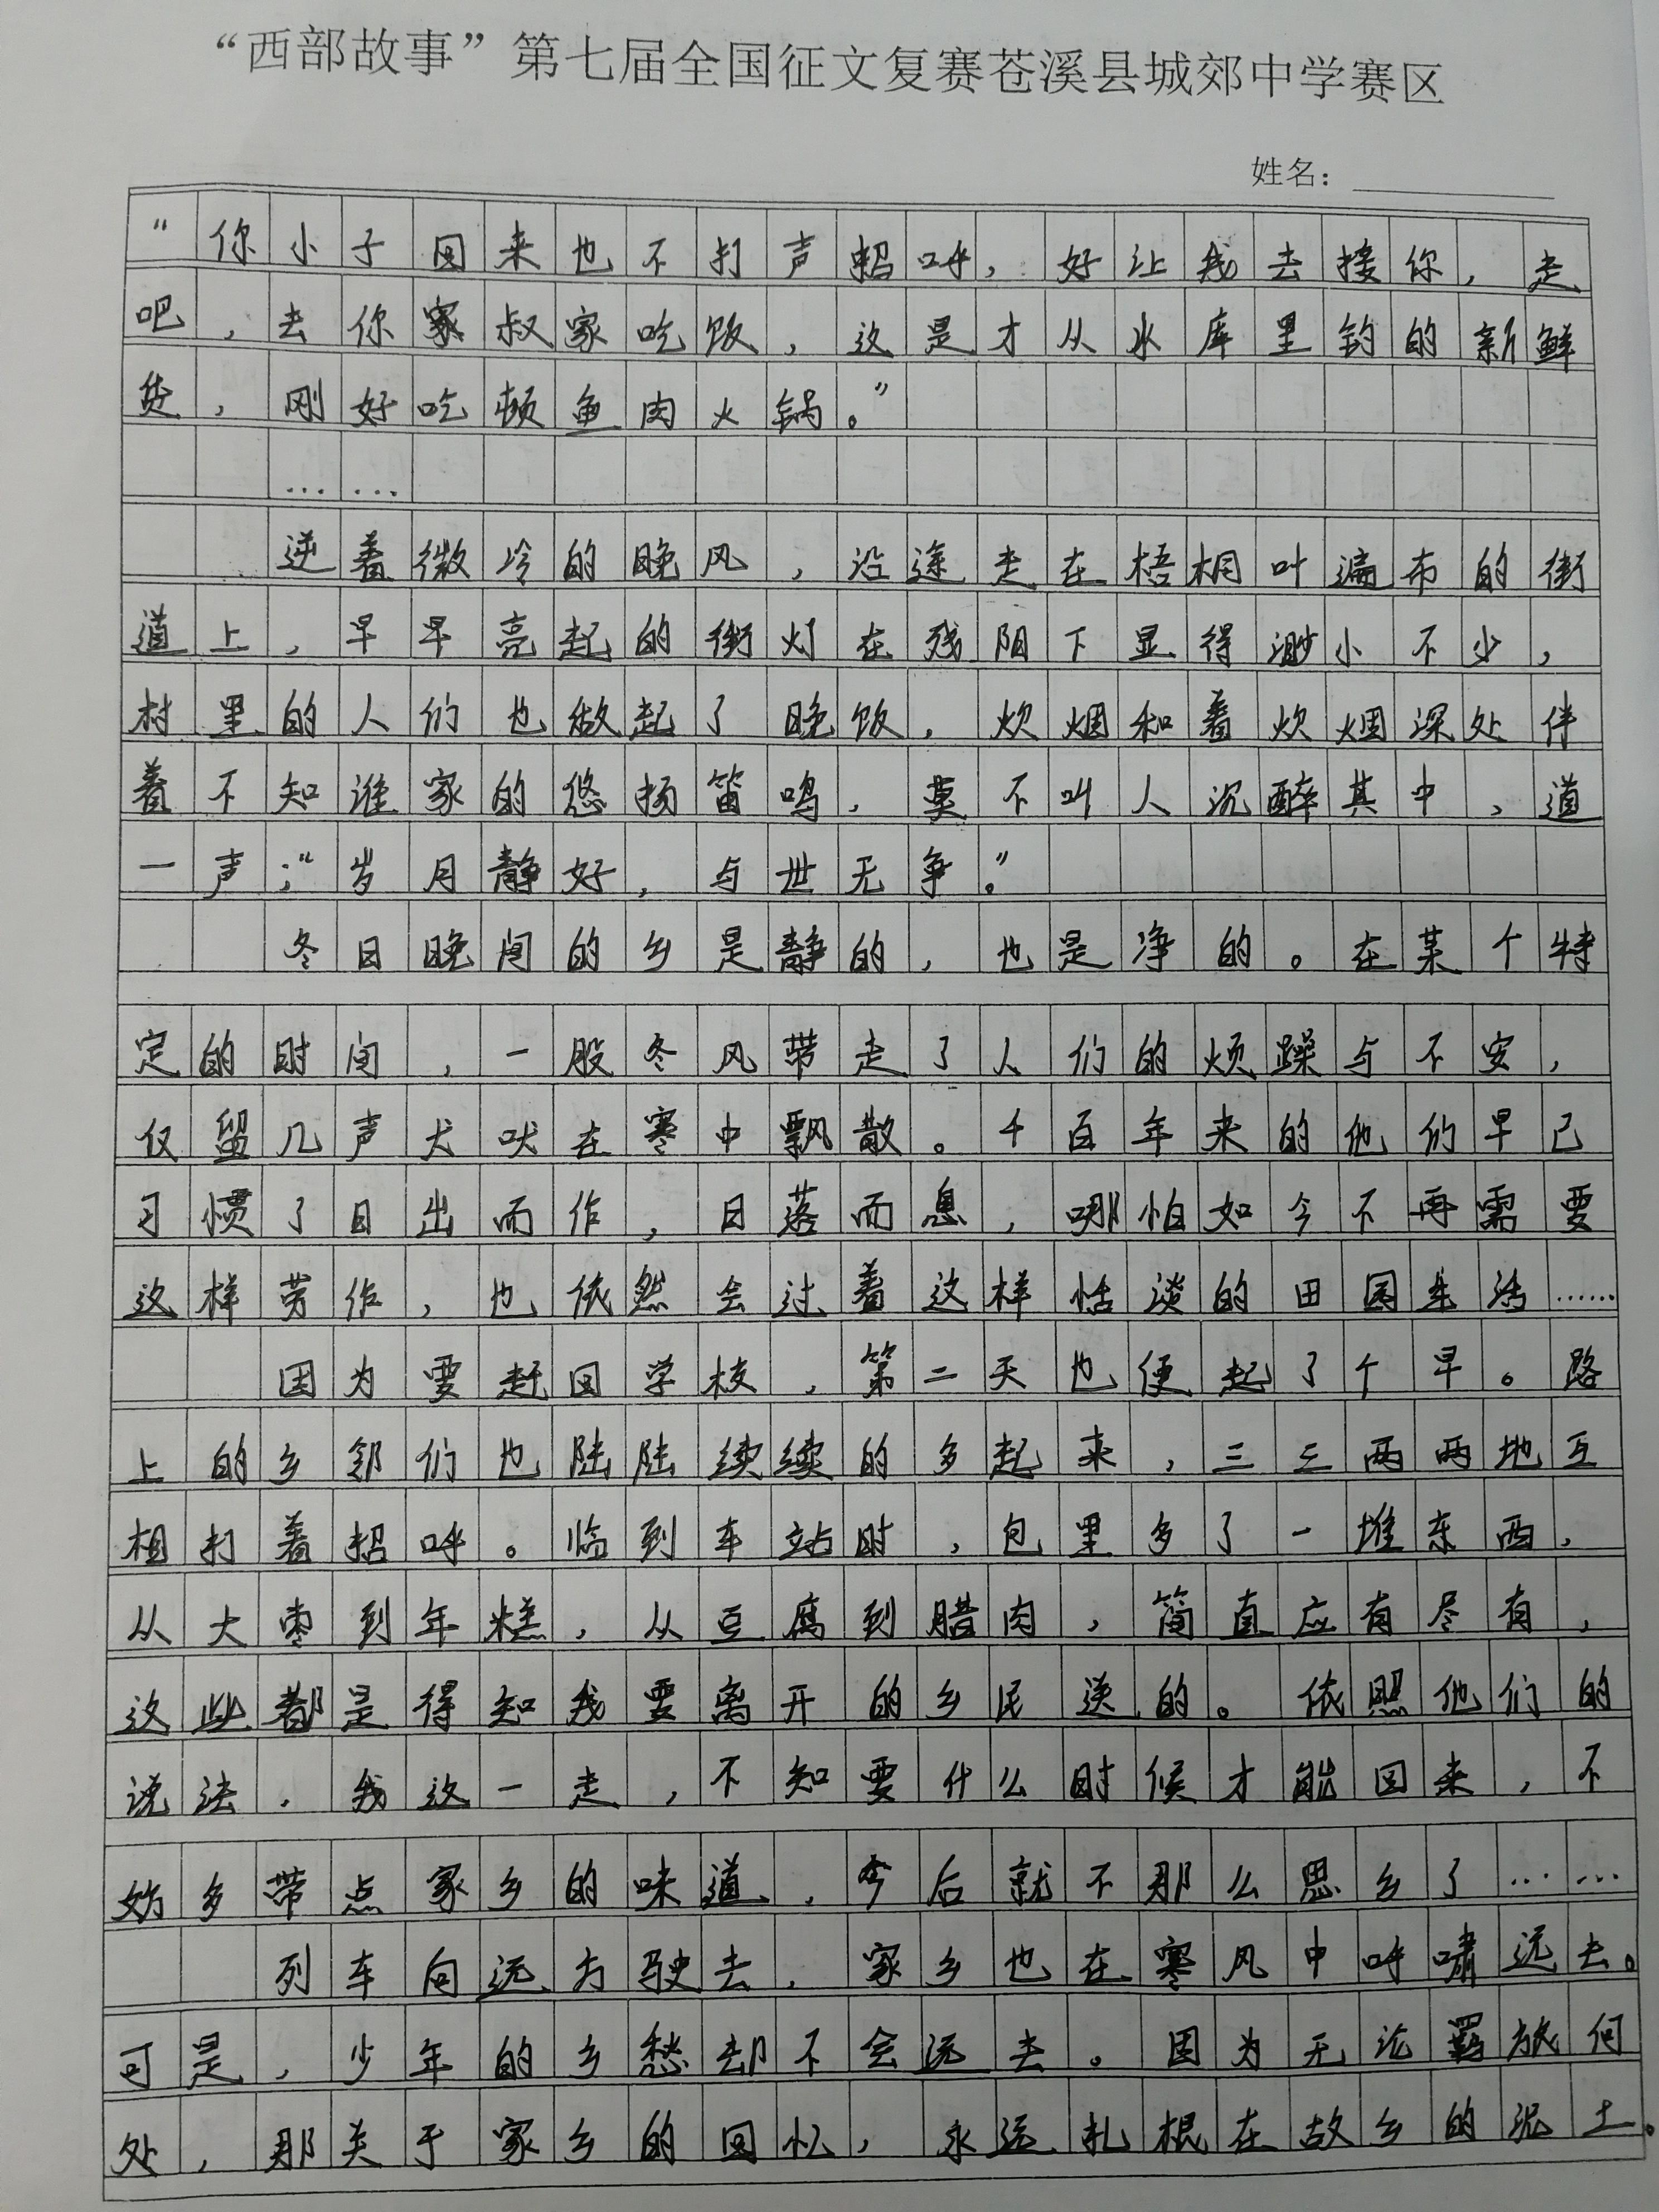 “西部故事”第七届全国征文复赛苍溪县城郊中学赛区
姓名：
“你小子回来也不打声招呼，好让我去接你，走
吧，去你家叔家吃饭，这是才从水库里钓的新鲜
货，刚好吃顿鱼肉火锅。”
……
逆着微冷的晚风，沿途走在梧桐叶遍布的街
道上，早早亮起的街灯在残阳下显得渺小不少，
村里的人们也做起了晚饭，炊烟和着炊烟深处伴
着不知谁家的悠扬笛鸣，莫不叫人沉醉其中，道
一声；“岁月静好，与世无争。”
冬日晚间的乡是静的，也是净的。在某个特
定的时间，一股冬风带走了人们的烦躁与不安，
仅留几声犬吠在寒中飘散。千百年来的他们早已
习惯了日出而作，日落而息，哪怕如今不再需要
这样劳作，也依然会过着这样恬淡的田园生活……
因为要赶回学校，第二天也便起了个早。路
上的乡邻们也陆陆续续的多起来，三三两两地互
相打着招呼。临到车站时，包里多了一堆东西，
从大枣到年糕，从豆腐到腊肉，简直应有尽有，
这些都是得知我要离开的乡民送的。依照他们的
说法，我这一走，不知要什么时候才能回来，不
妨多带点家乡的味道，今后就不那么思乡了……
列车向远方驶去，家乡也在寒风中呼啸远去。
可是，少年的乡愁却不会远去。因为无论羁旅何
处，那关于家乡的回忆，永远扎根在故乡的泥土。